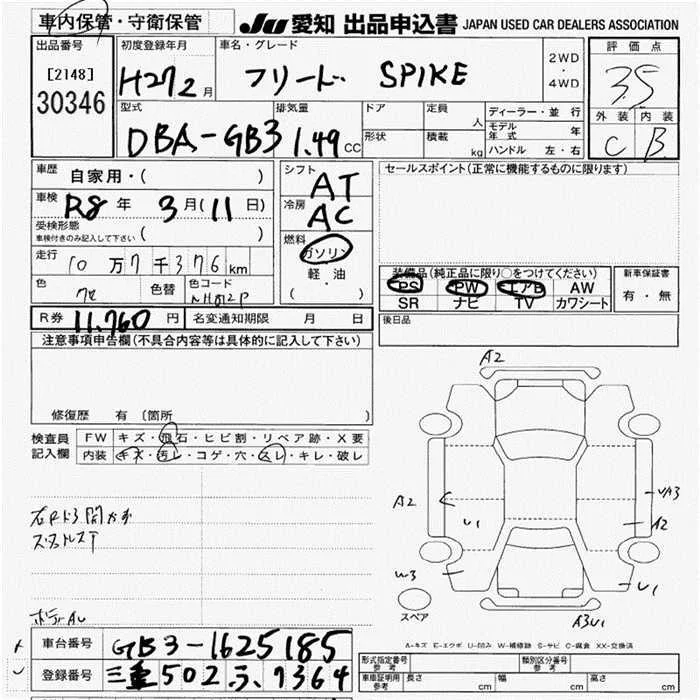 車内保管・守衛保管
JU 愛知 出品申込書 JAPAN USED CAR DEALERS ASSOCIATION
出品番号 初度登録年月 車名・グレード 2WD ・ 4WD 評価点
[2148] 30346 H27 2月 フリード SPIKE 3.5
型式 排気量 ドア 定員 人 ディーラー・並 行 外装 内装
DBA-GB3 1.49 CC 形状 積載 kg モデル年式 年 C B
ハンドル 左・右
車歴 自家用・( ) シフト AT セールスポイント(正常に機能するものに限ります)
車検 R8年 3月(11日) 冷房 AC
受検形態 車検付きのみ記入して下さい ( )
燃料 ガソリン 軽油 ( )
走行 10万7千376km
装備品(純正品に限り○をつけてください) 新車保証書
PS PW エアB AW 有・無
SR ナビ TV カワシート
色 色替 色コード NH812P
R券 11,760円 名変通知期限 月 日 後日品
注意事項申告欄(不具合内容等は具体的に記入して下さい)
修復歴 有 〔箇所
検査員記入欄 FW キズ・飛石・ヒビ割・リペア跡・X要
内装 キズ・汚レ・コゲ・穴・スレ・キレ・破レ
A2
A2
U1
UA3
A2
W3
U1
A3U1
スペア
A-キズ E-エクボ U-凹み W-補修跡 S-サビ C-腐食 XX-交換済
車台番号 GB3-1625185
登録番号 三重 502 ふ 9364
形式指定番号 参考 類別区分番号 参考
車庫証明用 参考 長さ cm 幅 cm 高さ cm